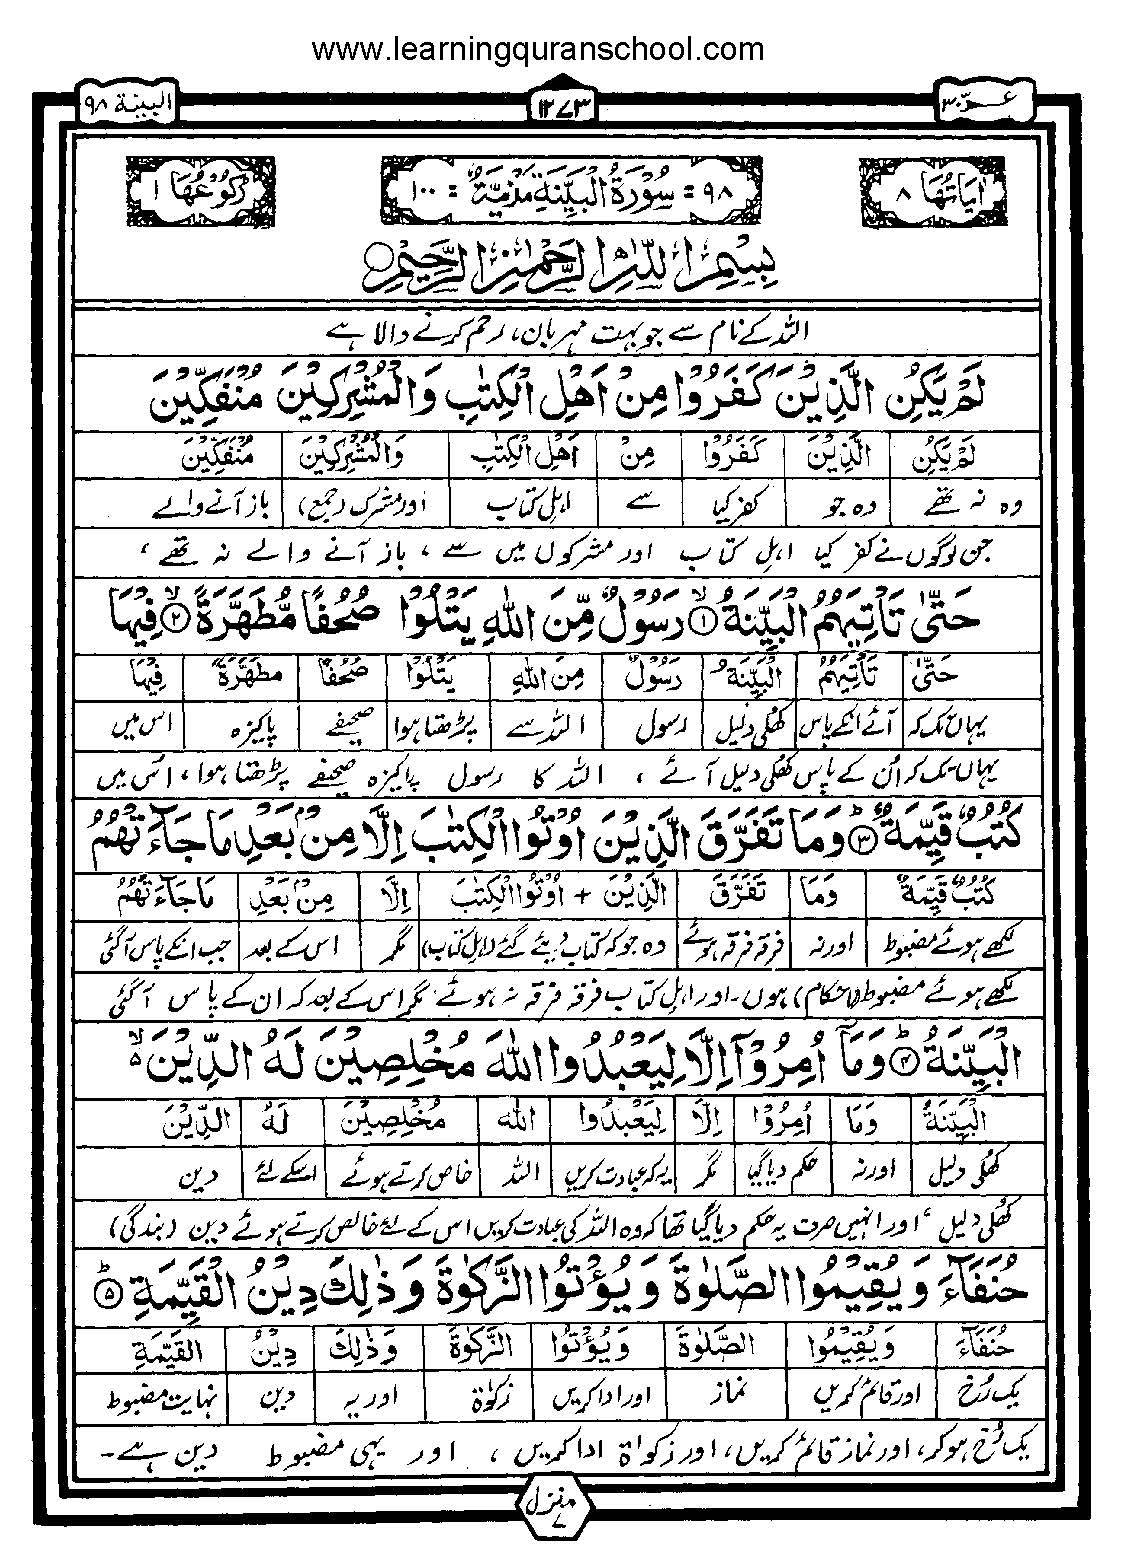 www.learningquranschool.com
عمّ ۳۰ ۱۲۷۳ البينة ۹۸
اٰیَاتُهَا ۸ ۹۸ = سُوْرَةُ الْبَیِّنَةِ مَدَنِیَّةٌ = ۱۰۰ رُکُوْعُهَا ۱
بِسْمِ اللّٰهِ الرَّحْمٰنِ الرَّحِیْمِ
اللہ کے نام سے جو بہت مہربان، رحم کرنے والا ہے
لَمْ یَكُنِ الَّذِیْنَ كَفَرُوْا مِنْ اَهْلِ الْكِتٰبِ وَالْمُشْرِكِیْنَ مُنْفَكِّیْنَ
لَمْ یَكُنِ الَّذِیْنَ كَفَرُوْا مِنْ اَهْلِ الْكِتٰبِ وَالْمُشْرِكِیْنَ مُنْفَكِّیْنَ
وہ نہ تھے وہ جو کفر کیا سے اہل کتاب اور مشرک (جمع) باز آنے والے
جن لوگوں نے کفر کیا اہل کتاب اور مشرکوں میں سے ، باز آنے والے نہ تھے ،
حَتّٰی تَاْتِیَهُمُ الْبَیِّنَةُ ۙ۱ رَسُوْلٌ مِّنَ اللّٰهِ یَتْلُوْا صُحُفًا مُّطَهَّرَةً ۙ۲ فِیْهَا
حَتّٰی تَاْتِیَهُمُ الْبَیِّنَةُ رَسُوْلٌ مِنَ اللّٰهِ یَتْلُوْا صُحُفًا مُطَهَّرَةً فِیْهَا
یہاں تک کہ آئے انکے پاس کھلی دلیل رسول اللہ سے پڑھتا ہوا صحیفے پاکیزہ اس میں
یہاں تک کہ اُن کے پاس کھلی دلیل آئے ، اللہ کا رسول پاکیزہ صحیفے پڑھتا ہوا، اُس میں
كُتُبٌ قَیِّمَةٌ ؕ۳ وَمَا تَفَرَّقَ الَّذِیْنَ اُوْتُوا الْكِتٰبَ اِلَّا مِنْۢ بَعْدِ مَا جَآءَتْهُمُ
كُتُبٌ قَیِّمَةٌ وَمَا تَفَرَّقَ الَّذِیْنَ + اُوْتُوا الْكِتٰبَ اِلَّا مِنْۢ بَعْدِ مَا جَآءَتْهُمُ
لکھے ہوئے مضبوط اور نہ فرقہ فرقہ ہوئے وہ جو کہ کتاب دیئے گئے (اہل کتاب) مگر اس کے بعد جب انکے پاس آگئی
لکھے ہوئے مضبوط (احکام) ہوں۔ اور اہل کتاب فرقہ فرقہ نہ ہوئے مگر اس کے بعد کہ ان کے پاس آگئی
الْبَیِّنَةُ ؕ۴ وَمَاۤ اُمِرُوْۤا اِلَّا لِیَعْبُدُوا اللّٰهَ مُخْلِصِیْنَ لَهُ الدِّیْنَ ۙ۵
الْبَیِّنَةُ وَمَا اُمِرُوْا اِلَّا لِیَعْبُدُوا اللّٰهَ مُخْلِصِیْنَ لَهُ الدِّیْنَ
کھلی دلیل اور نہ حکم دیا گیا مگر یہ کہ عبادت کریں اللہ خاص کرتے ہوئے اسکے لئے دین
کھلی دلیل ، اور انہیں صرف یہ حکم دیا گیا تھا کہ وہ اللہ کی عبادت کریں اس کے لئے خالص کرتے ہوئے دین (بندگی)
حُنَفَآءَ وَیُقِیْمُوا الصَّلٰوةَ وَیُؤْتُوا الزَّكٰوةَ وَذٰلِكَ دِیْنُ الْقَیِّمَةِ ؕ۵
حُنَفَآءَ وَیُقِیْمُوا الصَّلٰوةَ وَیُؤْتُوا الزَّكٰوةَ وَذٰلِكَ دِیْنُ الْقَیِّمَةِ
یک رُخ اور قائم کریں نماز اور ادا کریں زکوٰۃ اور یہ دین نہایت مضبوط
یک رُخ ہو کر، اور نماز قائم کریں، اور زکواۃ ادا کریں ، اور یہی مضبوط دین ہے۔
منزل ۷